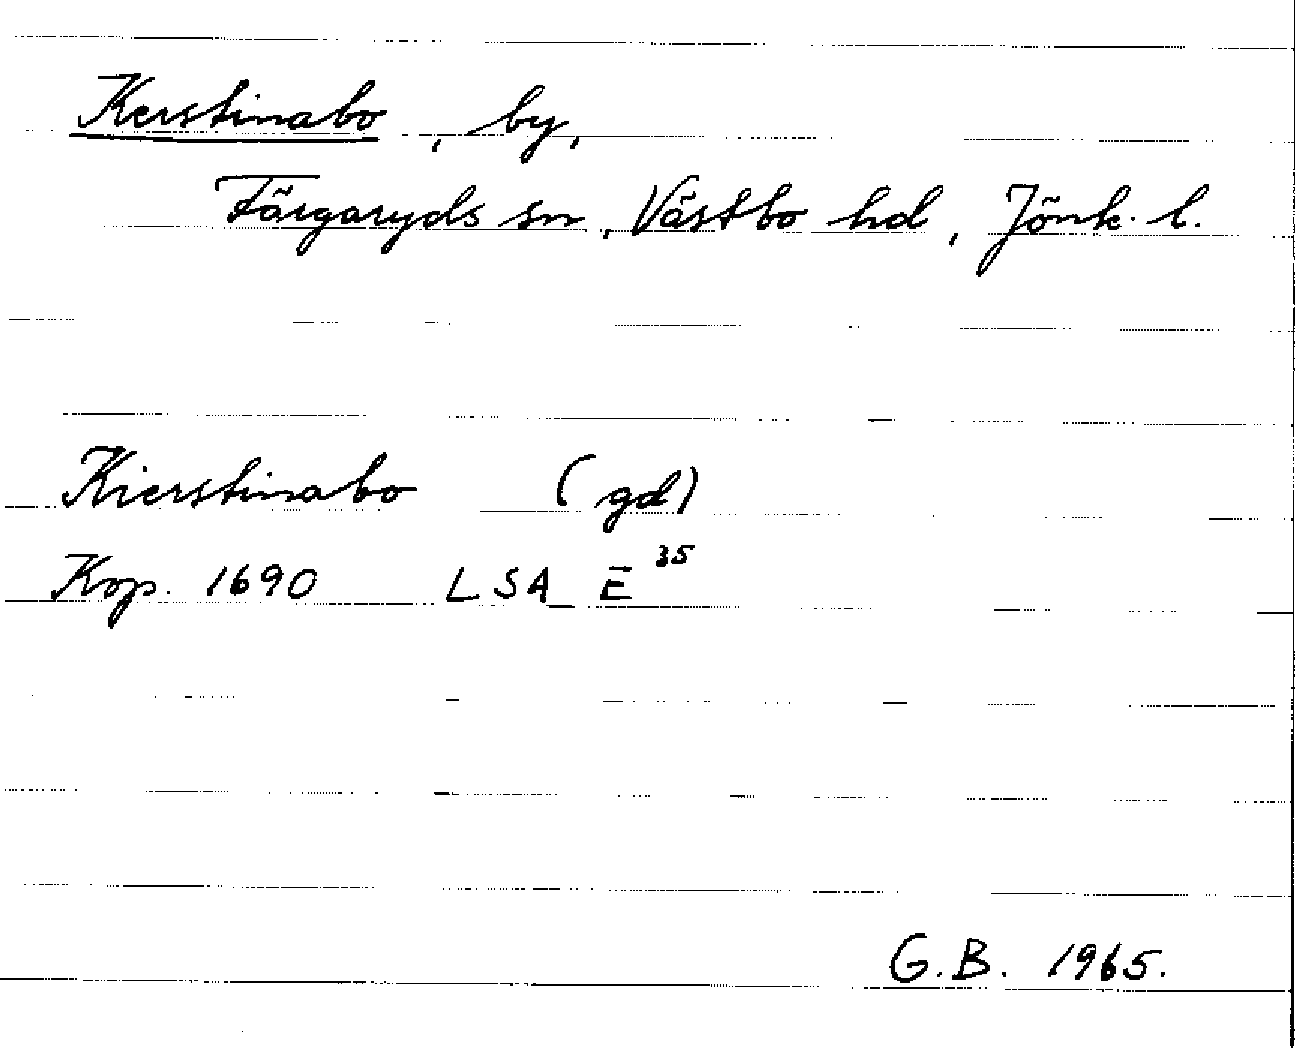 Kerstinabo, by,
Färgaryds sn, Västbo hd, Jönk. l.
Kierstinabo (gd)
Kop. 1690 LSA E 35
G.B. 1965.